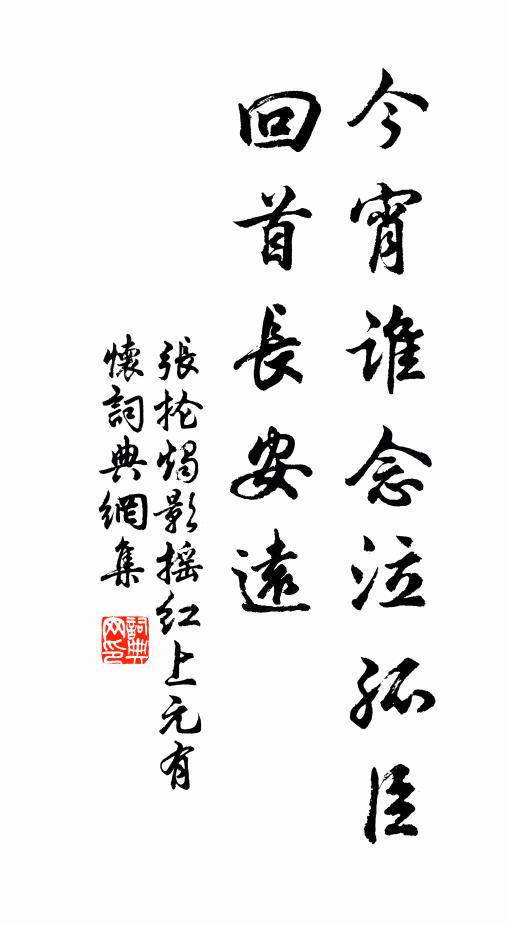 今宵誰念泣孤臣
回首長安遠
張抡燭影摇红上元有
懷詞典網集
詞典网印